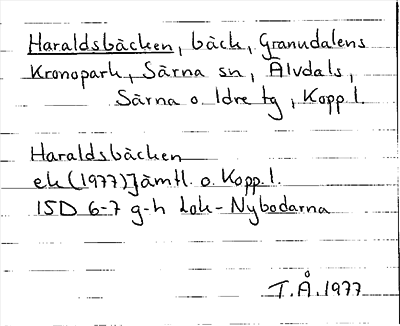 Haraldsbäcken, bäck, Granudalens
Kronopark, Särna sn, Älvdals,
Särna o. Idre tg, Kopp. l.
Haraldsbäcken
ek (1977) Jämtl. o. Kopp. l.
15D 6-7 g-h Lok- Nybodarna
T.Å. 1977